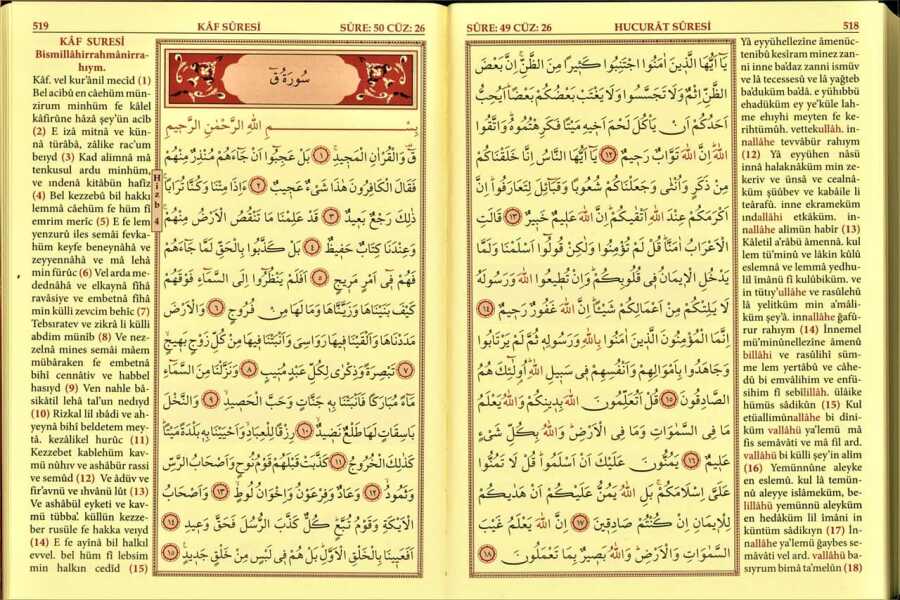 SÛRE: 49 CÜZ: 26 HUCURÂT SÛRESİ 518
يَٓا اَيُّهَا الَّذ۪ينَ اٰمَنُوا اجْتَنِبُوا كَث۪يرًا مِنَ الظَّنِّۘ اِنَّ بَعْضَ
الظَّنِّ اِثْمٌ وَلَا تَجَسَّسُوا وَلَا يَغْتَبْ بَعْضُكُمْ بَعْضًاۜ اَيُحِبُّ
اَحَدُكُمْ اَنْ يَأْكُلَ لَحْمَ اَخ۪يهِ مَيْتًا فَكَرِهْتُمُوهُۜ وَاتَّقُوا
اللّٰهَۜ اِنَّ اللّٰهَ تَوَّابٌ رَح۪يمٌ ﴿١٢﴾ يَٓا اَيُّهَا النَّاسُ اِنَّا خَلَقْنَاكُمْ
مِنْ ذَكَرٍ وَاُنْثٰى وَجَعَلْنَاكُمْ شُعُوبًا وَقَبَٓائِلَ لِتَعَارَفُواۜ اِنَّ
اَكْرَمَكُمْ عِنْدَ اللّٰهِ اَتْقٰيكُمْۜ اِنَّ اللّٰهَ عَل۪يمٌ خَب۪يرٌ ﴿١٣﴾ قَالَتِ
الْاَعْرَابُ اٰمَنَّاۜ قُلْ لَمْ تُؤْمِنُوا وَلٰكِنْ قُولُٓوا اَسْلَمْنَا وَلَمَّا
يَدْخُلِ الْا۪يمَانُ ف۪ي قُلُوبِكُمْۜ وَاِنْ تُط۪يعُوا اللّٰهَ وَرَسُولَهُ
لَا يَلِتْكُمْ مِنْ اَعْمَالِكُمْ شَيْـًٔاۜ اِنَّ اللّٰهَ غَفُورٌ رَح۪يمٌ ﴿١٤﴾
اِنَّمَا الْمُؤْمِنُونَ الَّذ۪ينَ اٰمَنُوا بِاللّٰهِ وَرَسُولِه۪ ثُمَّ لَمْ يَرْتَابُوا
وَجَاهَدُوا بِاَمْوَالِهِمْ وَاَنْفُسِهِمْ ف۪ي سَب۪يلِ اللّٰهِۜ اُو۬لٰٓئِكَ هُمُ
الصَّادِقُونَ ﴿١٥﴾ قُلْ اَتُعَلِّمُونَ اللّٰهَ بِد۪ينِكُمْ وَاللّٰهُ يَعْلَمُ
مَا فِي السَّمٰوَاتِ وَمَا فِي الْاَرْضِۜ وَاللّٰهُ بِكُلِّ شَيْءٍ
عَل۪يمٌ ﴿١٦﴾ يَمُنُّونَ عَلَيْكَ اَنْ اَسْلَمُواۜ قُلْ لَا تَمُنُّوا
عَلَيَّ اِسْلَامَكُمْۚ بَلِ اللّٰهُ يَمُنُّ عَلَيْكُمْ اَنْ هَدٰيكُمْ
لِلْا۪يمَانِ اِنْ كُنْتُمْ صَادِق۪ينَ ﴿١٧﴾ اِنَّ اللّٰهَ يَعْلَمُ غَيْبَ
السَّمٰوَاتِ وَالْاَرْضِۜ وَاللّٰهُ بَص۪يرٌ بِمَا تَعْمَلُونَ ﴿١٨﴾
Yâ eyyühellezîne âmenüc-
tenibû kesîram minez zan-
ni inne ba'daz zanni ismüv
ve lâ tecessesû ve lâ yağteb
ba'duküm ba'dâ. e yühıbbü
ehadüküm ey ye'küle lah-
me ehıyhi meyten fe ke-
rihtümûh. vettekullâh. in-
nallâhe tevvâbür rahıym
(12) Yâ eyyühen nâsü
innâ halaknâküm min ze-
keriv ve ünsâ ve cealnâ-
küm şüûbev ve kabâile li
teârafû. inne ekrameküm
ındallâhi etkâküm. in-
nallâhe alîmün habîr (13)
Kâletil a'râbü âmennâ. kul
lem tü'minû ve lâkin kûlû
eslemnâ ve lemmâ yedhu-
lil îmânü fî kulûbiküm. ve
in tütıy'ullâhe ve rasûlehû
lâ yelitküm min a'mâli-
küm şey'â. innallâhe ğafû-
rur rahıym (14) İnnemel
mü'minûnellezîne âmenû
billâhi ve rasûlihî süm-
me lem yertâbû ve câhe-
dû bi emvâlihim ve enfü-
sihim fî sebîlillâh. ülâike
hümüs sâdikûn (15) Kul
etüallimûnallâhe bi dîni-
küm vallâhü ya'lemü mâ
fis semâvâti ve mâ fil ard.
vallâhü bi külli şey'in alîm
(16) Yemünnûne aleyke
en eslemû. kul lâ temün-
nû aleyye islâmeküm, be-
lillâhü yemünnü aleyküm
en hedâküm lil îmâni in
küntüm sâdikıyn (17) İn-
nallâhe ya'lemü ğaybes se-
mâvâti vel ard. vallâhü ba-
sıyrum bimâ ta'melûn (18)
519 KÂF SÛRESİ SÛRE: 50 CÜZ: 26
سُورَةُ قٓ
بِسْمِ اللّٰهِ الرَّحْمٰنِ الرَّح۪يمِ
قٓ۠ وَالْقُرْاٰنِ الْمَج۪يدِۚ ﴿١﴾ بَلْ عَجِبُٓوا اَنْ جَٓاءَهُمْ مُنْذِرٌ مِنْهُمْ
فَقَالَ الْكَافِرُونَ هٰذَا شَيْءٌ عَج۪يبٌۚ ﴿٢﴾ ءَاِذَا مِتْنَا وَكُنَّا تُرَابًاۚ
ذٰلِكَ رَجْعٌ بَع۪يدٌ ﴿٣﴾ قَدْ عَلِمْنَا مَا تَنْقُصُ الْاَرْضُ مِنْهُمْۚ
وَعِنْدَنَا كِتَابٌ حَف۪يظٌ ﴿٤﴾ بَلْ كَذَّبُوا بِالْحَقِّ لَمَّا جَٓاءَهُمْ
فَهُمْ ف۪ٓي اَمْرٍ مَر۪يجٍ ﴿٥﴾ اَفَلَمْ يَنْظُرُٓوا اِلَى السَّمَٓاءِ فَوْقَهُمْ
كَيْفَ بَنَيْنَاهَا وَزَيَّنَّاهَا وَمَا لَهَا مِنْ فُرُوجٍ ﴿٦﴾ وَالْاَرْضَ
مَدَدْنَاهَا وَاَلْقَيْنَا ف۪يهَا رَوَاسِيَ وَاَنْبَتْنَا ف۪يهَا مِنْ كُلِّ زَوْجٍ بَه۪يجٍۙ
﴿٧﴾ تَبْصِرَةً وَذِكْرٰى لِكُلِّ عَبْدٍ مُن۪يبٍ ﴿٨﴾ وَنَزَّلْنَا مِنَ السَّمَٓاءِ
مَٓاءً مُبَارَكًا فَاَنْبَتْنَا بِه۪ جَنَّاتٍ وَحَبَّ الْحَص۪يدِۙ ﴿٩﴾ وَالنَّخْلَ
بَاسِقَاتٍ لَهَا طَلْعٌ نَض۪يدٌۙ ﴿١٠﴾ رِزْقًا لِلْعِبَادِۙ وَاَحْيَيْنَا بِه۪ بَلْدَةً مَيْتًاۜ
كَذٰلِكَ الْخُرُوجُ ﴿١١﴾ كَذَّبَتْ قَبْلَهُمْ قَوْمُ نُوحٍ وَاَصْحَابُ الرَّسِّ
وَثَمُودُۙ ﴿١٢﴾ وَعَادٌ وَفِرْعَوْنُ وَاِخْوَانُ لُوطٍۙ ﴿١٣﴾ وَاَصْحَابُ
الْاَيْكَةِ وَقَوْمُ تُبَّعٍۜ كُلٌّ كَذَّبَ الرُّسُلَ فَحَقَّ وَع۪يدِ ﴿١٤﴾
اَفَعَي۪ينَا بِالْخَلْقِ الْاَوَّلِۜ بَلْ هُمْ ف۪ي لَبْسٍ مِنْ خَلْقٍ جَد۪يدٍ۟ ﴿١٥﴾
Hizb 4
KÂF SURESİ
Bismillâhirrahmânirra-
hıym.
Kâf. vel kur'ânil mecîd (1)
Bel acibû en câehüm mün-
zirum minhüm fe kâlel
kâfirûne hâzâ şey'ün acîb
(2) E izâ mitnâ ve kün-
nâ türâbâ, zâlike rac'um
beıyd (3) Kad alimnâ mâ
tenkusul ardu minhüm,
ve ındenâ kitâbün hafîz
(4) Bel kezzebû bil hakkı
lemmâ câehüm fe hüm fî
emrim merîc (5) E fe lem
yenzurû iles semâi fevka-
hüm keyfe beneynâhâ ve
zeyyennâhâ ve mâ lehâ
min fürûc (6) Vel arda me-
dednâhâ ve elkaynâ fîhâ
ravâsiye ve embetnâ fîhâ
min külli zevcim behîc (7)
Tebsıratev ve zikrâ li külli
abdim münîb (8) Ve nez-
zelnâ mines semâi mâem
mübâraken fe embetnâ
bihî cennâtiv ve habbel
hasıyd (9) Ven nahle bâ-
sikâtil lehâ tal'un nedıyd
(10) Rizkal lil ıbâdi ve ah-
yeynâ bihî beldetem mey-
tâ. kezâlikel hurûc (11)
Kezzebet kablehüm kav-
mü nûhıv ve ashâbür rassi
ve semûd (12) Ve âdüv ve
fir'avnü ve ıhvânü lût (13)
Ve ashâbül eyketi ve kav-
mü tübba'. küllün kezze-
ber rusüle fe hakka veıyd
(14) E fe ayînâ bil halkıl
evvel. bel hüm fî lebsim
min halkın cedîd (15)